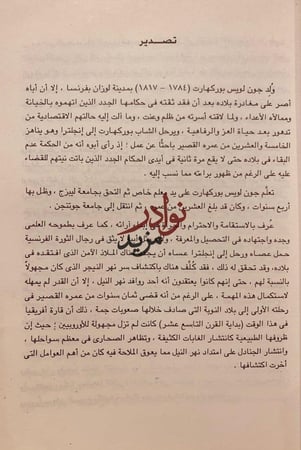 تصـديـر
ولد جون لويس بوركهارت (١٧٨٤ – ١٨١٧) بمدينة لوزان بفرنسا ، إلا أن أباه
أصر على مغادرة بلاده بعد أن فقد ثقته فى حكامها الجدد الذين اتهموه بالخيانة
وممالأه الأعداء ، ولما لاقته أسرته من ظلم وعنت ، وما آلت إليه حالتهم الاقتصادية من
تدهور بعد حياة العز والرفاهية ، ورحل الشاب بوركهارت إلى إنجلترا وهو يناهز
الخامسة والعشرين من عمره القصير باحثًا عن عمل ؛ إذ رأى أبوه أنه من الحكمة عدم
البقاء فى بلاده حتى لا يقع مرة ثانية فى أيدى الحكام الجدد الذين باتت نيتهم للقضاء
عليه على الرغم من ظهور براءته مما نسب إليه .
تعلّم جون لويس بوركهارت على يد معلم خاص ثم التحق بجامعة ليبزج ، وظل بها
أربع سنوات ، وكان قد بلغ العشرين من عمره ، ثم انتقل إلى جامعة جوتنجن .
عُرف بالاستقامة والاحترام آرائه ، كما عرف بطموحه العلمى
وجده واجتهاده فى التحصيل والمعرفة ، يثق فى رجال الثورة الفرنسية
حمل عصاه ورحل إلى إنجلترا عساه أن يجد هناك الملاذ الآمن الذى افتقده فى
بلاده، وقد تحقق له ذلك ، فقد كُلف هناك باكتشاف سر نهر النيجر الذى كان مجهولاً
بالنسبة لهم ، حتى إنهم كانوا يعتقدون أنه أحد روافد نهر النيل ، إلا أن القدر لم يمهله
لاستكمال هذه المهمة ، على الرغم من أنه قضى ثمان سنوات من عمره القصير فى
رحلته تلك إلى بلاد النوبة التى صادف خلالها صعوبات جمة ، ذلك أن قارة أفريقيا
فى هذا الوقت (بداية القرن التاسع عشر) كانت لم تزل مجهولة للأوروبيين ؛ حيث إن
ظروفها الطبيعية كانتشار الغابات الكثيفة ، وتظاهر الصحارى فى معظم سواحلها ،
وانتشار الجنادل على امتداد نهر النيل مما يعوق الملاحة فيه كان من أهم العوامل التى
أخرت اكتشافها .
نوادر
مزيد